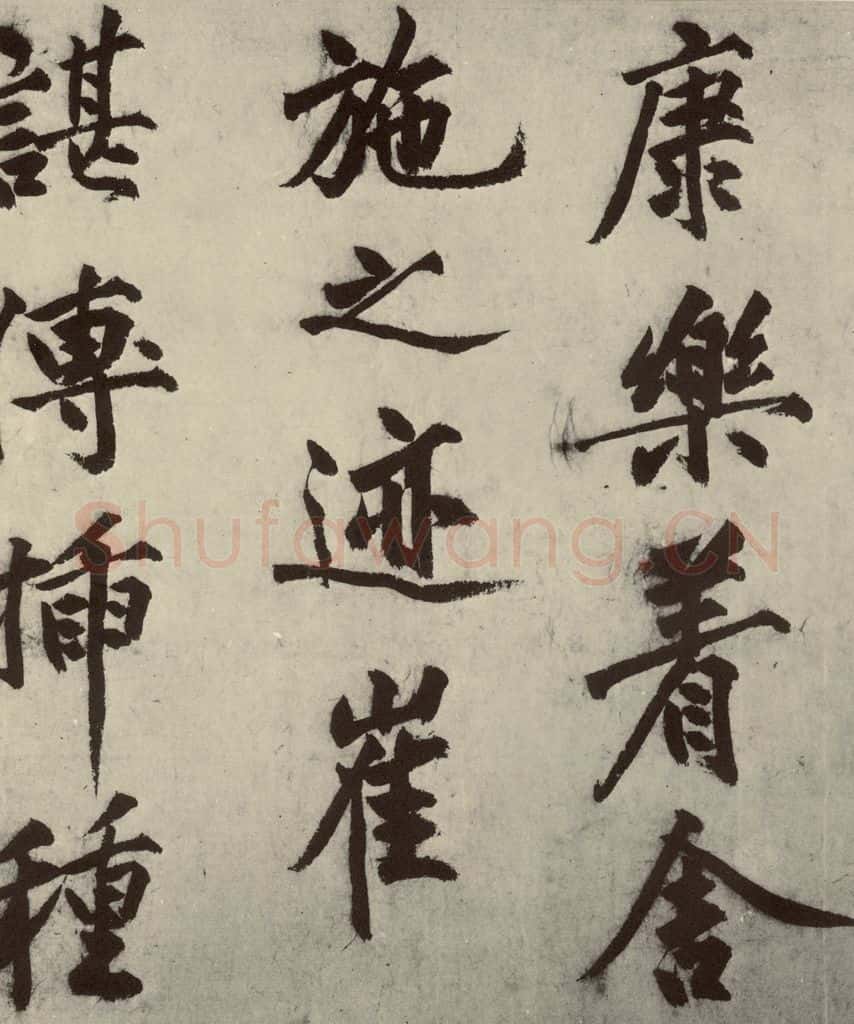 康樂着舍
施之迹崔
諶傳揷種
Shufawang.CN